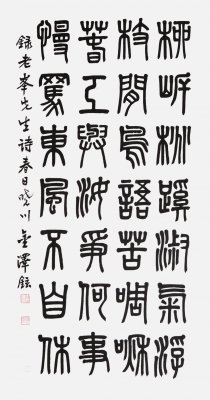 柳岸桃蹊淑氣浮
枝間鳥語苦啁啾
春工與汝爭何事
慢罵東風不自休
錄老峯先生詩春日曉川金澤鉉